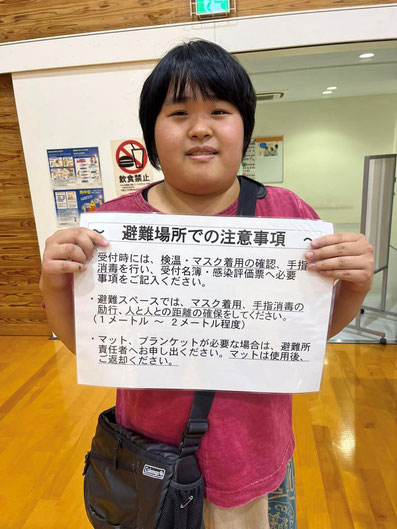 飲食禁止
～ 避難場所での注意事項 ～
受付時には、検温・マスク着用の確認、手指
消毒を行い、受付名簿・感染評価票へ必要
事項をご記入ください。
・避難スペースでは、マスク着用、手指消毒の
励行、人と人との距離の確保をしてください。
（１メートル ～ ２メートル程度）
・マット、ブランケットが必要な場合は、避難所
責任者へお申し出ください。マットは使用後、
ご返却ください。
Coleman